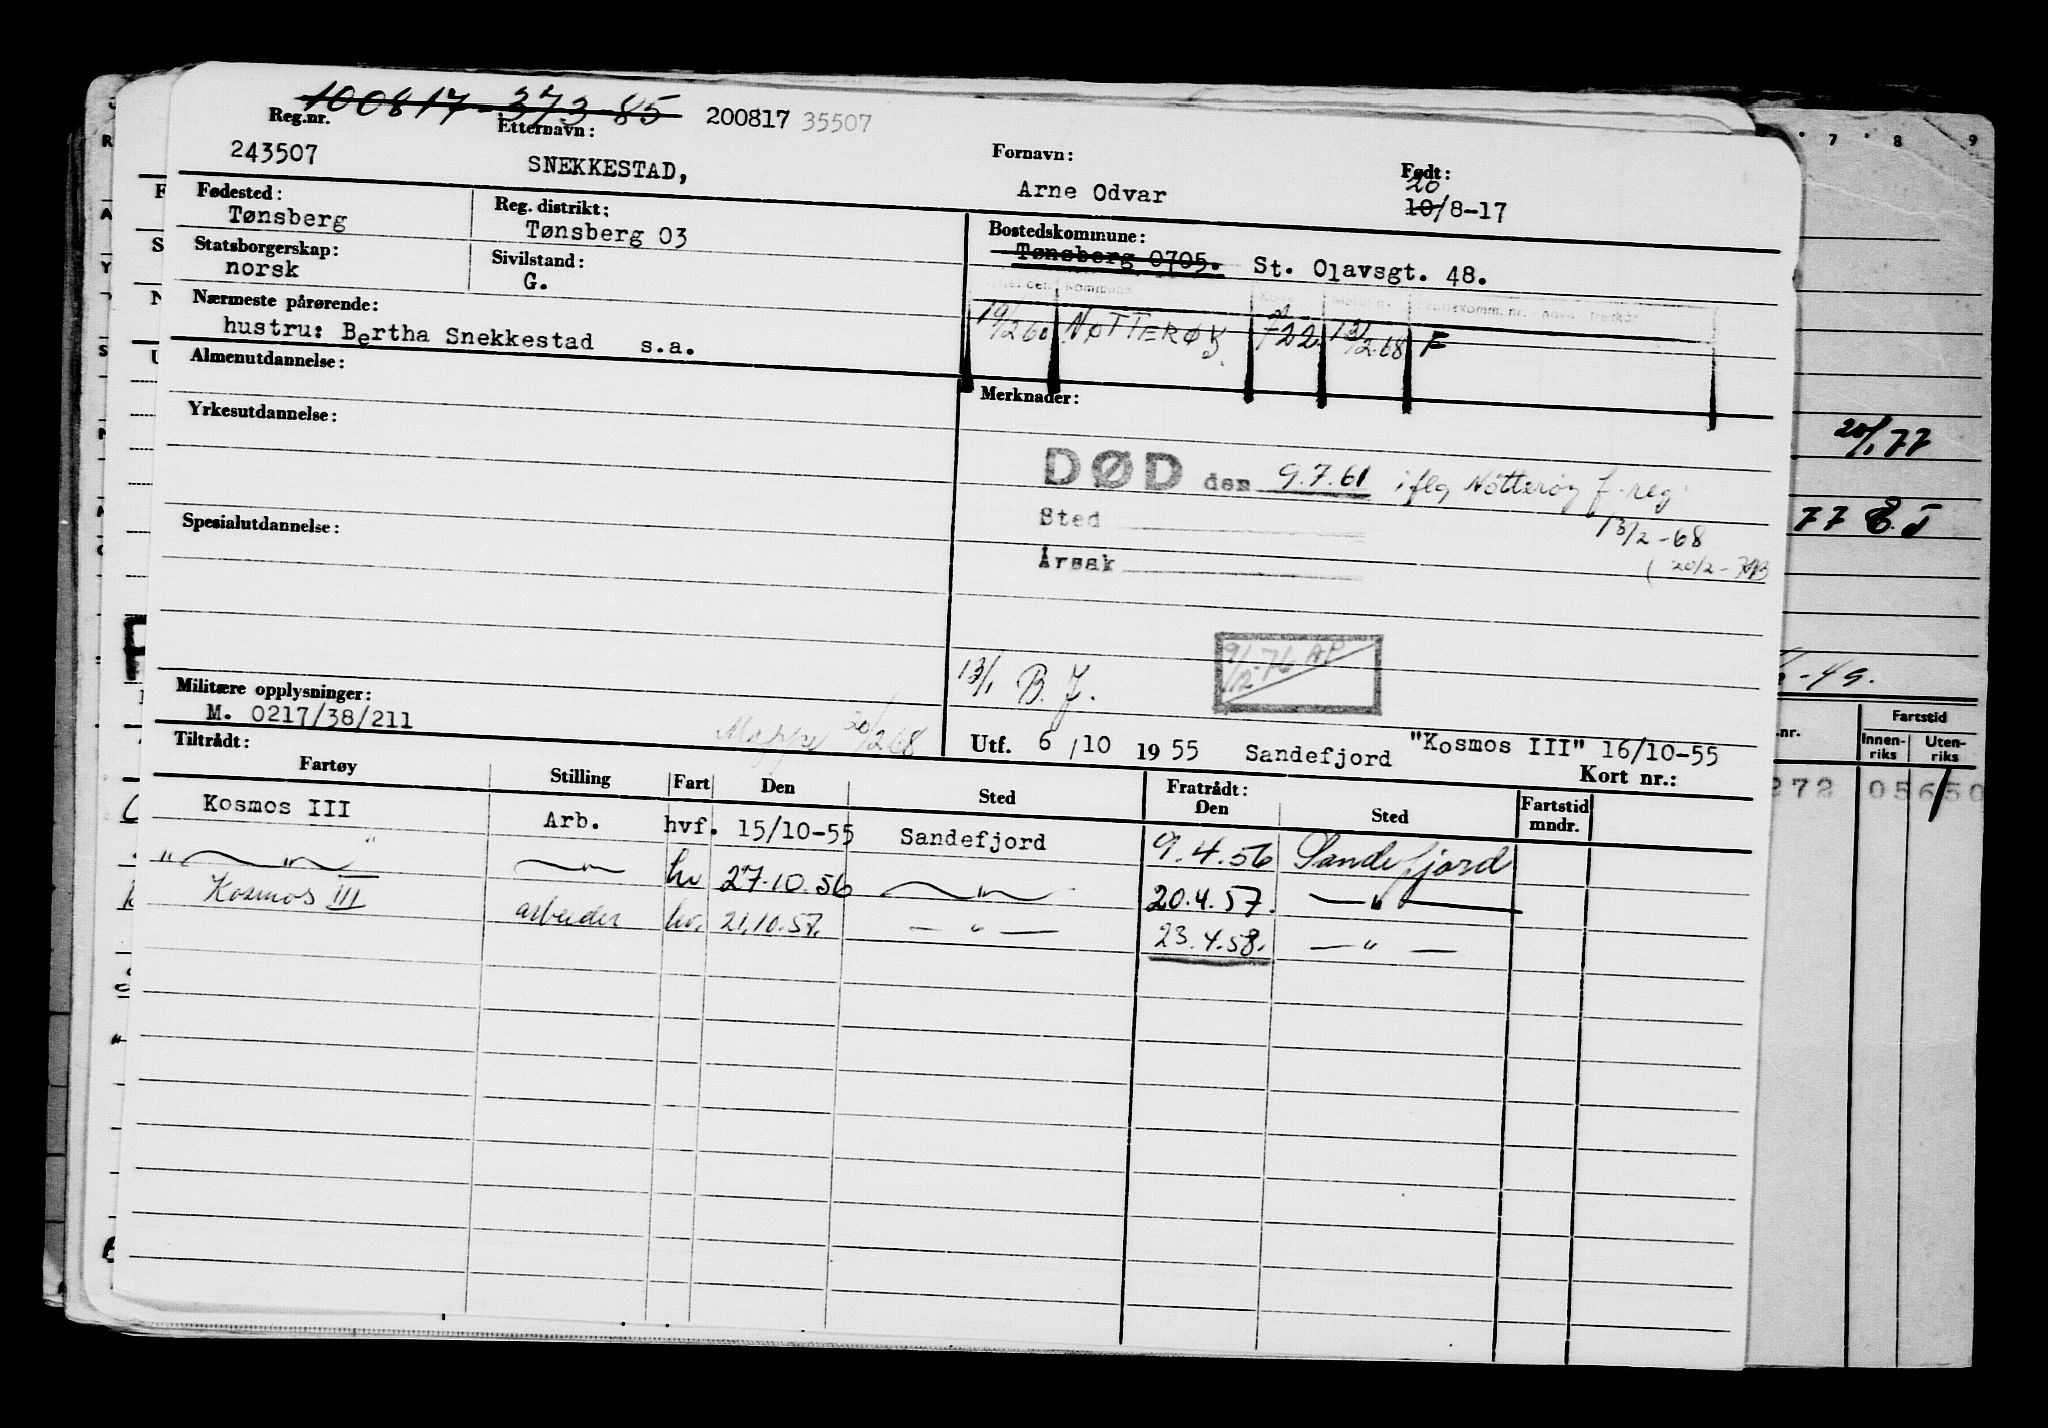 100817-373-85 200817 35507
Reg.nr. Etternavn: Fornavn: Født:
243507 SNEKKESTAD, Arne Odvar 20
10/8-17
Fødested: Reg. distrikt: Bostedskommune:
Tønsberg Tønsberg 03 Tønsberg 0705. St. Olavsgt. 48.
Statsborgerskap: Sivilstand:
norsk G.
19/2 60 NØTTERØY 722 13/2.68 F
Nærmeste pårørende:
hustru: Bertha Snekkestad s.a.
Almenutdannelse: Merknader:
Yrkesutdannelse:
DØD den 9.7.61 iflg Nøtterøy f.reg
13/2-68
Sted
Spesialutdannelse:
Årsak
13/1 B.J. 9/12-76 AP
Militære opplysninger:
M. 0217/38/211 Mappe 20/2 68
Utf. 6/10 1955 Sandefjord "Kosmos III" 16/10-55
Tiltrådt: Kort nr.:
Fartøy Stilling Fart Den Sted Fratrådt: Den Sted Fartstid mndr.
Kosmos III Arb. hvf. 15/10-55 Sandefjord 9.4.56 Sandefjord
" — " — — " — hv 27.10.56 — " — 20.4.57. — " —
Kosmos III arbeider hv. 21.10.57. — " — 23.4.58. — " —
7 8 9
20/1 77
77 E.J
-49.
.nr. Fartstid
Innen-riks Uten-riks
272 05650